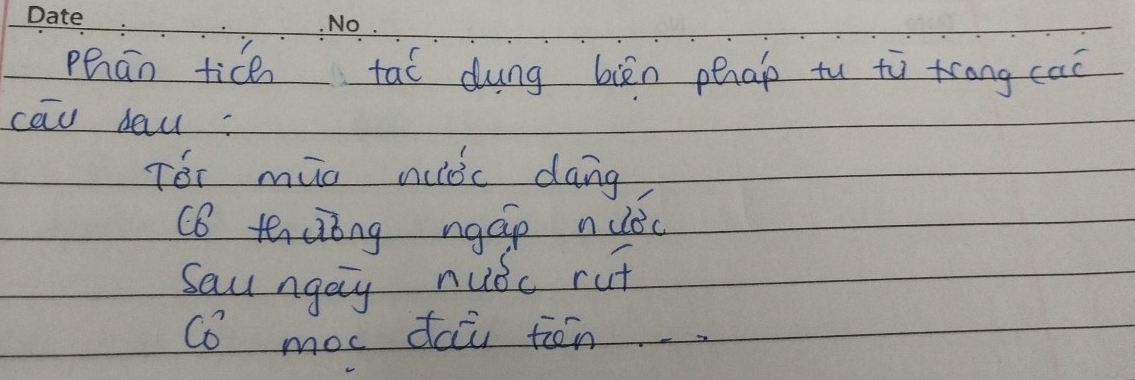 Date No
Phân tích tác dụng biện pháp tu từ trong các
câu sau :
Tới mùa nước dâng
Cỏ thường ngập nước
Sau ngày nước rút
Cỏ mọc đầu tiên ...